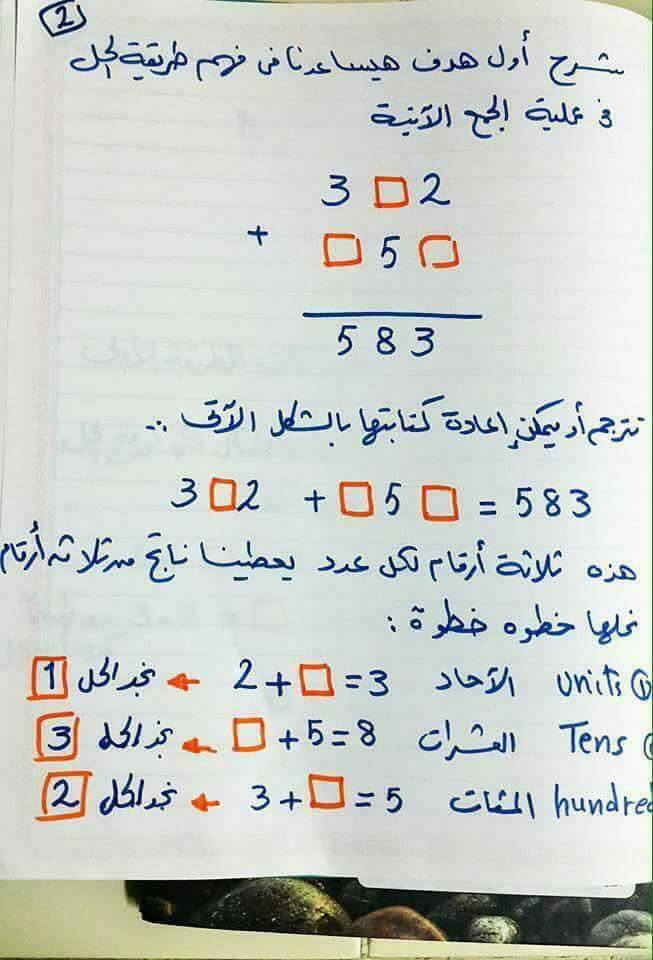 2
شرح أول هدف هيساعدنا فى فهم طريقة الحل
فى عملية الجمع الآتية
3 □ 2
+ □ 5 □
5 8 3
تترجم أو يمكن إعادة كتابتها بالشكل الآتى :-
3 □ 2 + □ 5 □ = 583
هذه ثلاثة أرقام لكل عدد يعطينا ناتج من ثلاثه أرقام
نحلها خطوه خطوة :
units ① الآحاد 2 + □ = 3 ← نجد الحل 1
Tens العشرات □ + 5 = 8 ← نجد الحل 3
hundred المئات 3 + □ = 5 ← نجد الحل 2